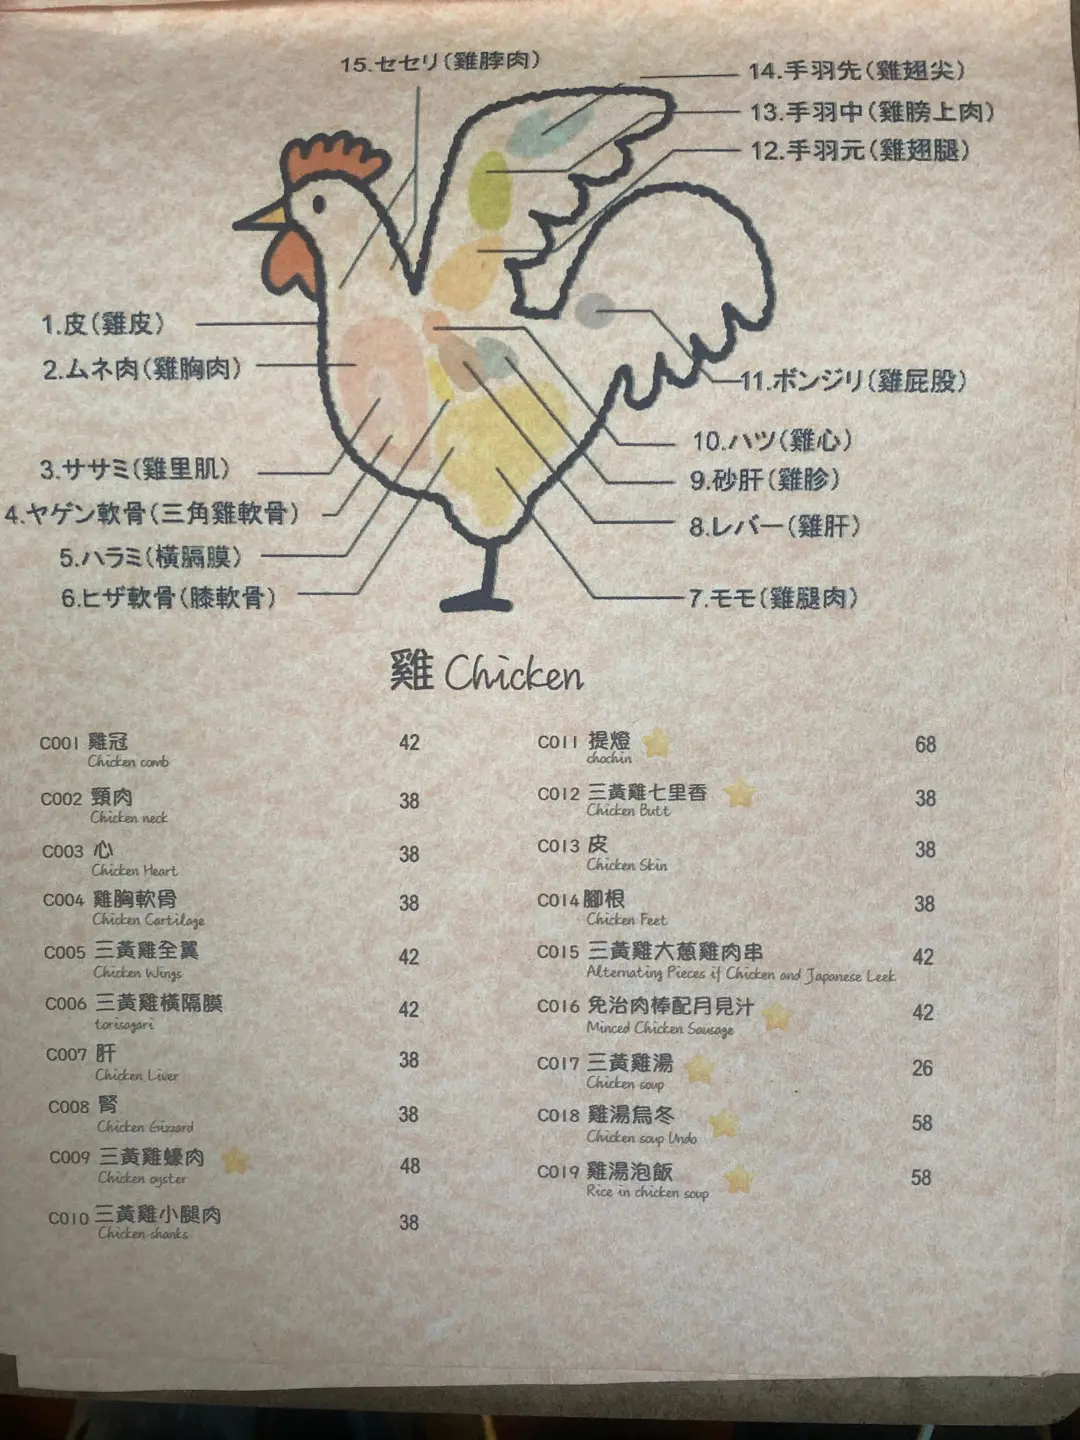 15.セセリ(雞脖肉)
14.手羽先(雞翅尖)
13.手羽中(雞膀上肉)
12.手羽元(雞翅腿)
1.皮(雞皮)
2.ムネ肉(雞胸肉)
3.ササミ(雞里肌)
4.ヤゲン軟骨(三角雞軟骨)
5.ハラミ(橫膈膜)
6.ヒザ軟骨(膝軟骨)
11.ボンジリ(雞屁股)
10.ハツ(雞心)
9.砂肝(雞胗)
8.レバー(雞肝)
7.モモ(雞腿肉)
雞 Chicken
C001 雞冠 42
Chicken comb
C002 頸肉 38
Chicken neck
C003 心 38
Chicken Heart
C004 雞胸軟骨 38
Chicken Cartilage
C005 三黃雞全翼 42
Chicken Wings
C006 三黃雞橫隔膜 42
torisagari
C007 肝 38
Chicken Liver
C008 腎 38
Chicken Gizzard
C009 三黃雞蠔肉 48
Chicken oyster
C010 三黃雞小腿肉 38
Chicken shanks
C011 提燈 68
chochin
C012 三黃雞七里香 38
Chicken Butt
C013 皮 38
Chicken Skin
C014 腳根 38
Chicken Feet
C015 三黃雞大蔥雞肉串 42
Alternating Pieces if Chicken and Japanese Leek
C016 免治肉棒配月見汁 42
Minced Chicken Sausage
C017 三黃雞湯 26
Chicken soup
C018 雞湯烏冬 58
Chicken soup Undo
C019 雞湯泡飯 58
Rice in chicken soup